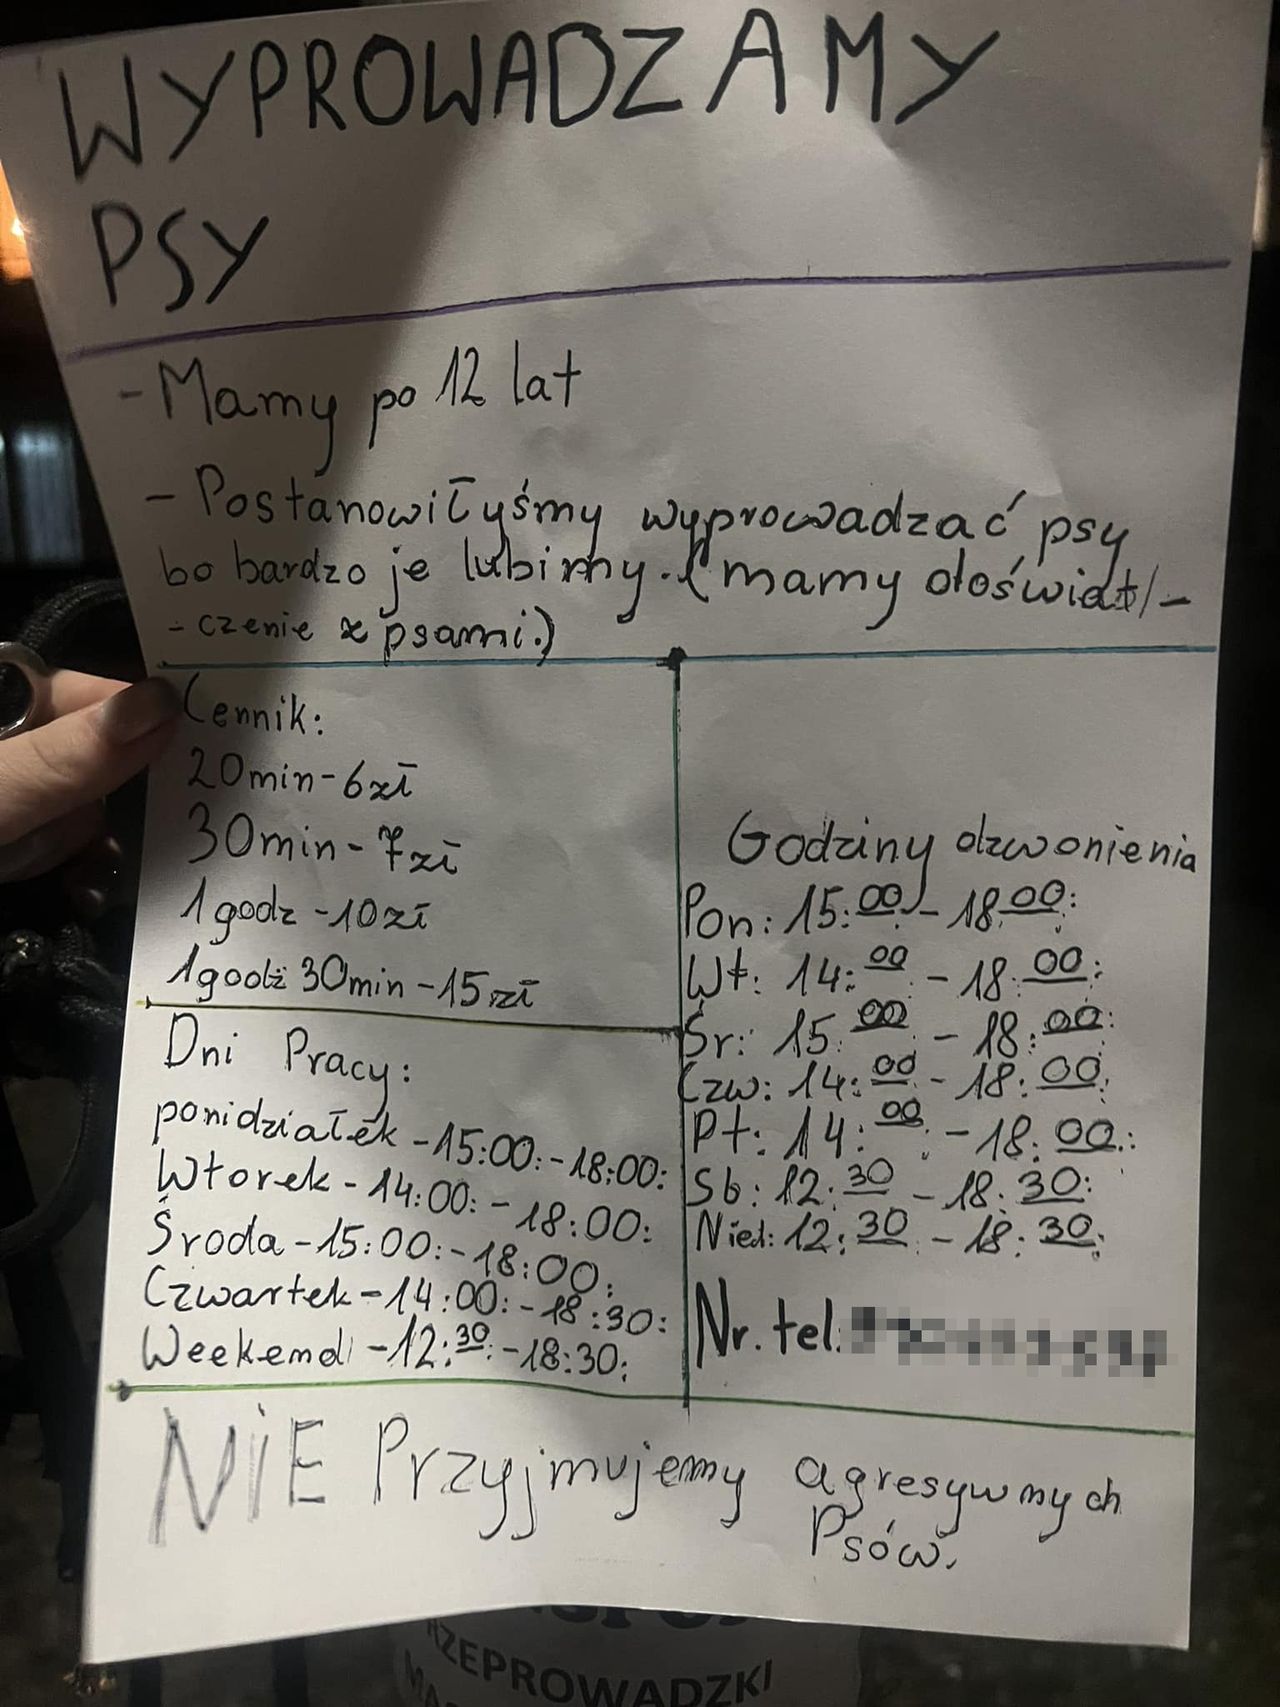 WYPROWADZAMY
PSY
- Mamy po 12 lat
- Postanowiłyśmy wyprowadzać psy
bo bardzo je lubimy. (mamy doświad/-
- czenie z psami.)
Cennik:
20min - 6zł
30min - 7zł
1godz - 10zł
1godz 30min - 15zł
Dni Pracy:
ponidziałek - 15:00: - 18:00:
Wtorek - 14:00: - 18:00:
Środa - 15:00: - 18:00:
Czwartek - 14:00: - 18:30:
Weekend - 12:30: - 18:30:
Godziny dzwonienia
Pon: 15:00 - 18:00:
Wt: 14:00 - 18:00:
Śr: 15:00 - 18:00:
Czw: 14:00 - 18:00:
Pt: 14:00 - 18:00:
Sb: 12:30 - 18:30:
Nied: 12:30 - 18:30:
Nr. tel:
NIE Przyjmujemy agresywnych
Psów.
PRZEPROWADZKI